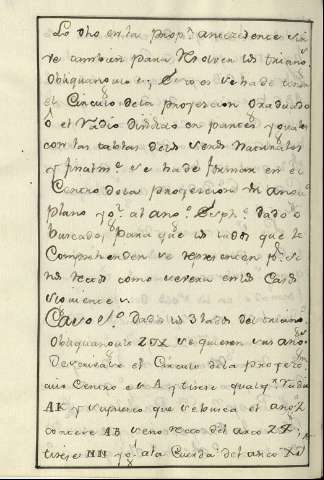 Lo dho en la prop.n antecedente sir
ve tambien para resolver los triang.s
Obliquangulos Esfericos se ha de tener
el Circulo dela proyeccion graduado
ô el Radio dividido en partes yguales
con las tablas delos senos Naturales
y finalm.te se ha de formar en el
Centro dela proyeccion un angulo
plano yg.l al ang.o Esph.o dado o
buscado para que los lados que le
Comprehenden se representen p.r li
neas rectas como se vera en los Casos
siguientes.
Caso 1.o Dados los 3 lados del triang.o
Obliquangulo ZSX se quieren sus ang.s
Descrivase el Circulo dela proyecc.n
cuio Centro es A y tirese qualq.r Radio
AK y supuesto que se busca el ang.o Z
cortese AB seno recto del arco ZX;
tirese NN yg.l ala Cuerda del arco XS